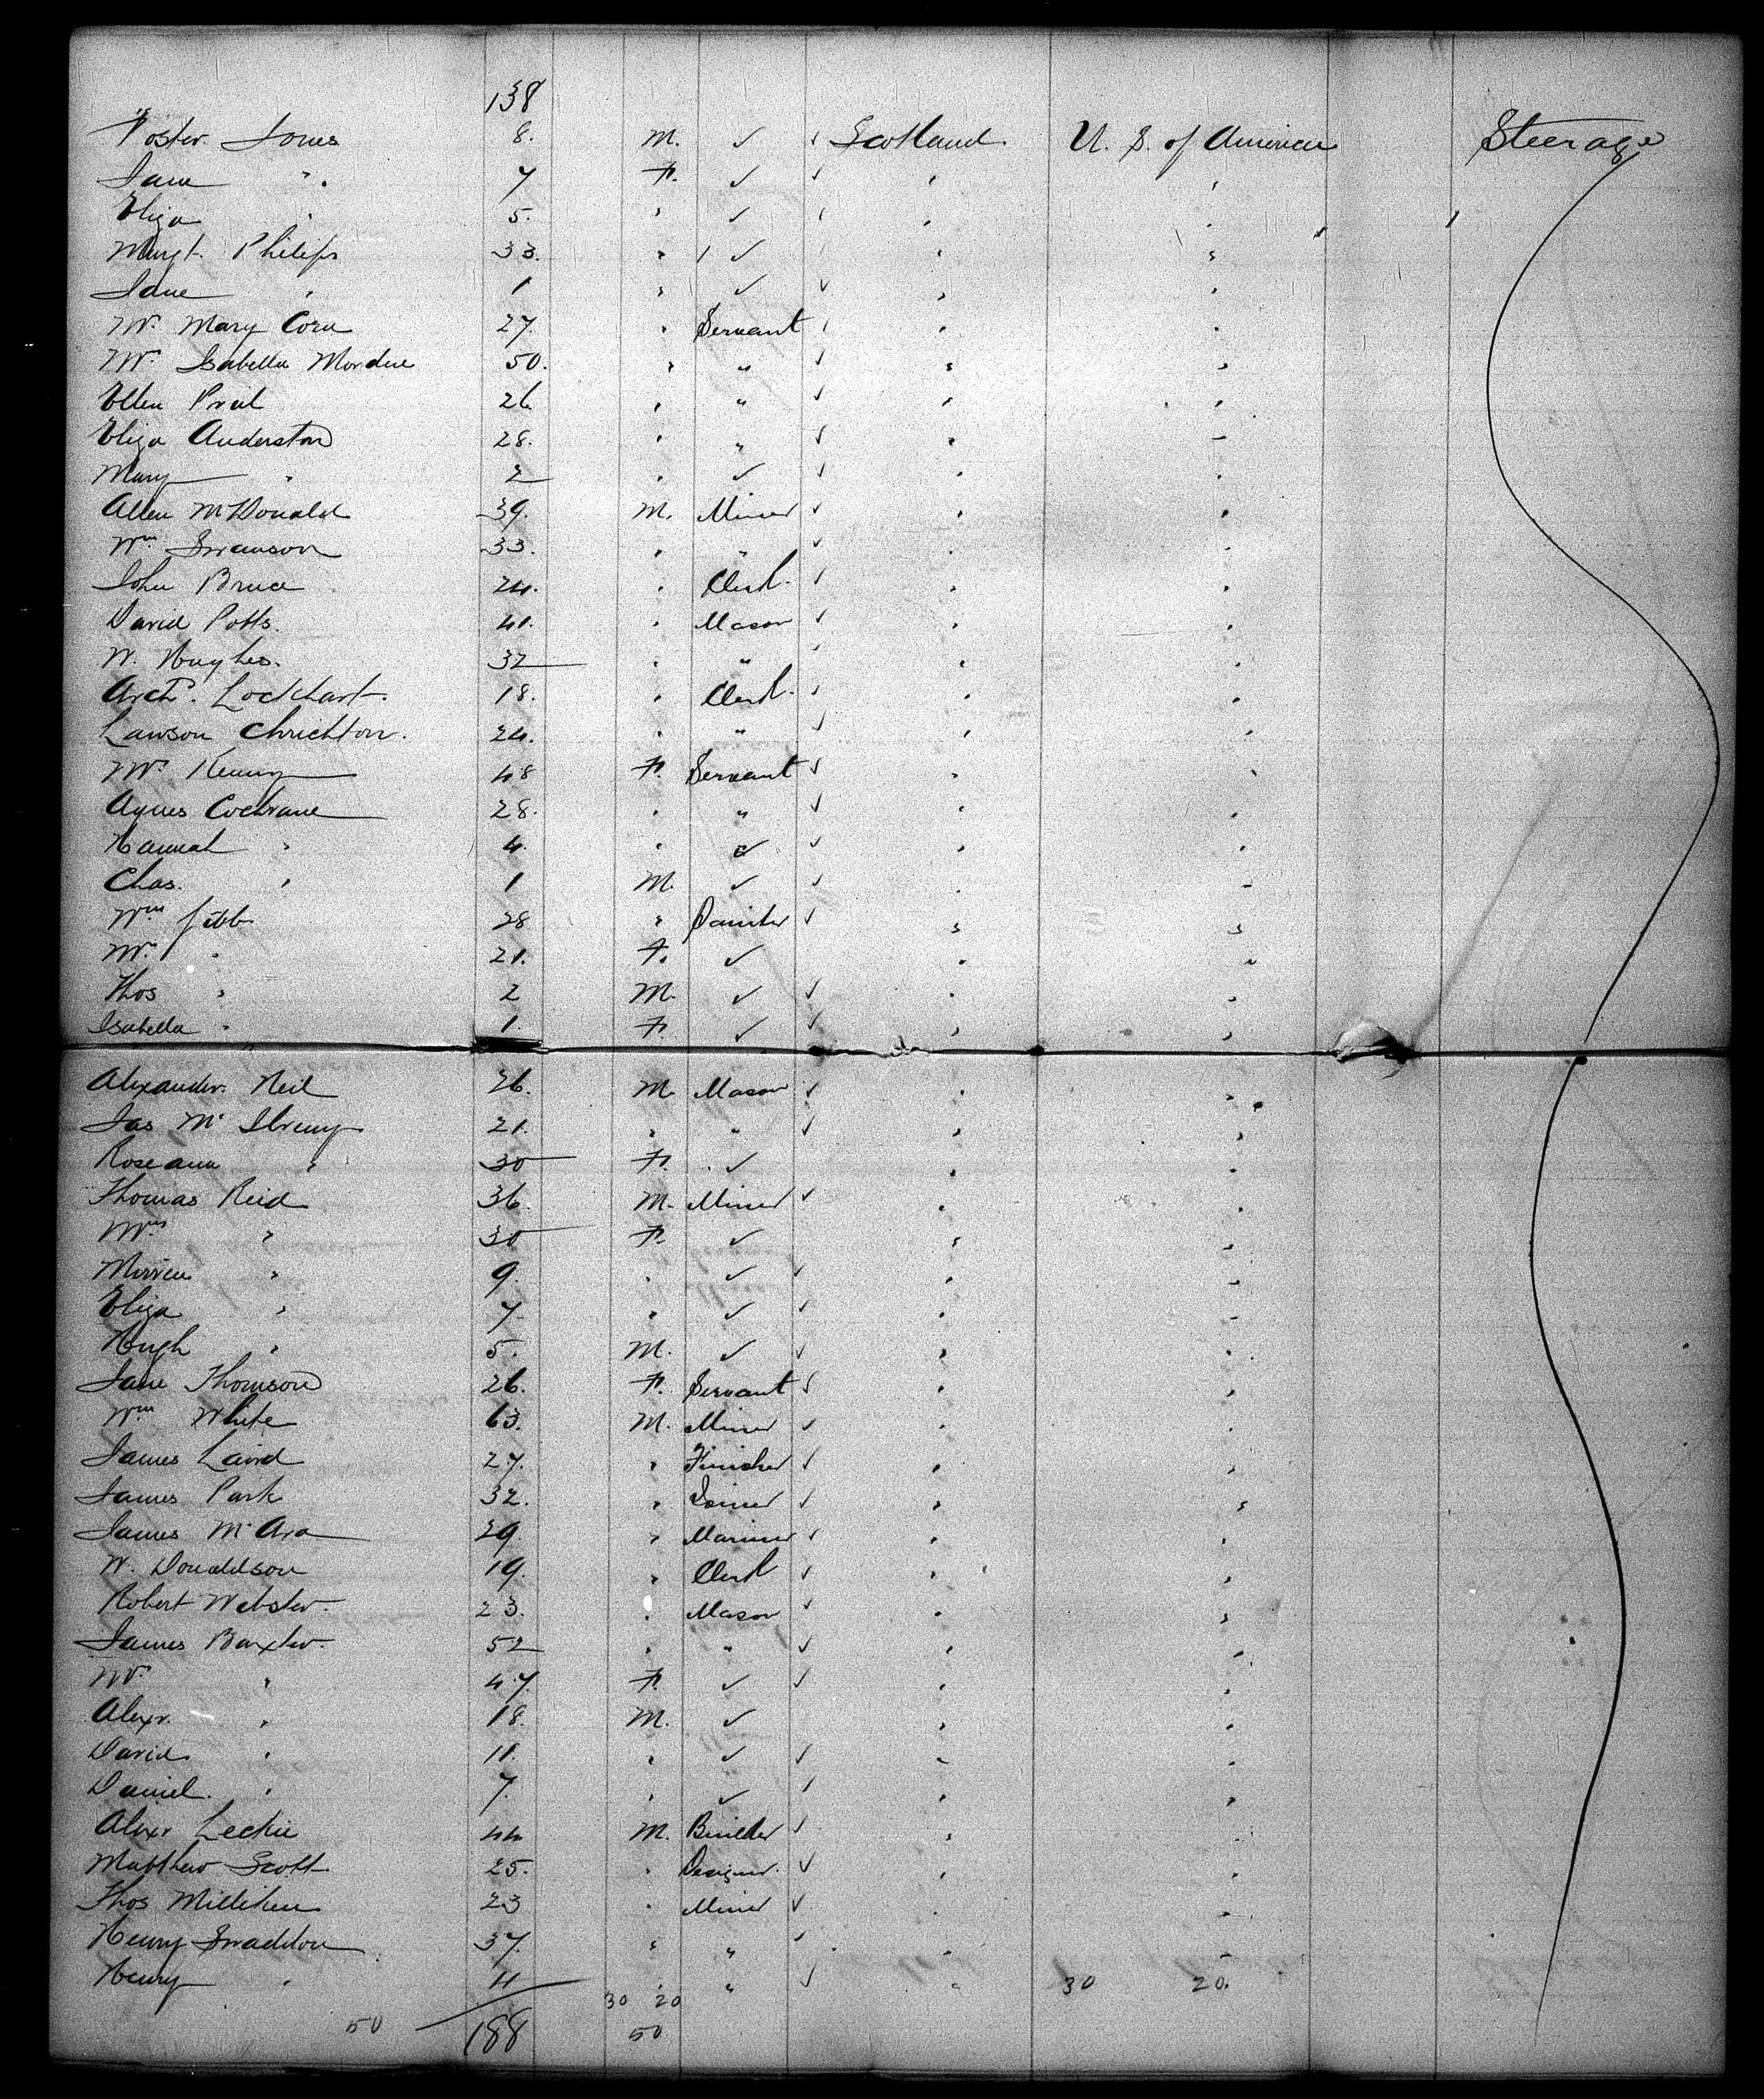 138
Foster Jones 8. M. ✓ ✓ Scotland. U. S. of America Steerage
Jane " 7 F. ✓ ✓ " "
Eliza " 5. " ✓ " "
Margt. Philips 33. " / ✓ " "
Jane " 1 " ✓ ✓ " "
Mrs. Mary Corn 27. " Servant " "
Mrs. Isabella Mordue 50. " " ✓ " "
Ellen 26 " " ✓ " "
Eliza Anderston 28. " " ✓ " "
Mary " 2 " ✓ ✓ " "
Allen McDonald 39. M. Miner ✓ " "
Wm. Swanson 33. " " ✓ " "
John Bruce 24. " Clerk. ✓ " "
David Potts. 41. " Mason ✓ " "
W. Hughes. 32 " " ✓ " "
Archd. Lockhart. 18. " Clerk. ✓ " "
Lawson Chrichton. 24. " " ✓ " "
Mrs. Kenny 48 F. Servant ✓ " "
Agnes Cochrane 28. " " ✓ " "
Hannah " 4. " ✓ ✓ " "
Chas. " 1 M. ✓ ✓ " "
Wm Gibb 28 " Painter ✓ " "
Mrs. " 21. F. ✓ " "
Thos " 2 M. ✓ ✓ " "
Isabella " 1. F. ✓ ✓ " "
Alexander. Neil 26. M. Mason ✓ " "
Jas Mc Ilveny 21. " " ✓ " "
Roseann " 30 F. ✓ " "
Thomas Reid 36. M. Miner ✓ " "
Mrs " 30 F. ✓ " "
Mirren " 9. " ✓ ✓ " "
Eliza " 7. " ✓ ✓ " "
Hugh " 5. M. ✓ ✓ " "
Jane Thomson 26. F. Servant ✓ " "
Wm White 63. M. Miner ✓ " "
James Laird 27. " Finisher ✓ " "
James Park 32. " Joiner ✓ " "
James McAra 29. " Mariner ✓ " "
W. Donaldson 19. " Clerk ✓ " "
Robert Webster. 23. " Mason ✓ " "
James Baxter. 52 " " ✓ " "
Mrs. " 47. F. ✓ ✓ " "
Alexr. " 18. M. ✓ " "
David " 11. " ✓ ✓ " "
Daniel. " 7. " ✓ ✓ " "
Alexr Leckie 44 M. Builder ✓ " "
Matthew Scott 25. " Designer. ✓ " "
Thos Milliken 23 " Miner ✓ " "
Henry Swaddon 37. " " ✓ " "
Henry " 11 " " ✓ " 30 20.
30 20
50 188 50